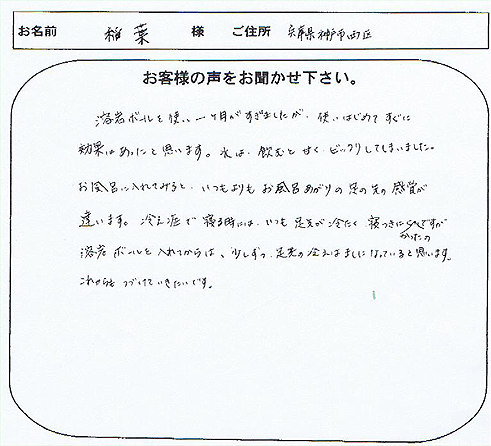 お名前 稲葉 様 ご住所 兵庫県神戸市西区
お客様の声をお聞かせ下さい。
溶岩ボールを使い一ヶ月がすぎましたが、使いはじめてすぐに
効果はあったと思います。水は、飲むと甘くビックリしてしまいました。
お風呂に入れてみると、いつもよりもお風呂あがりの足の先の感覚が
違います。冷え症で寝る時には、いつも足先が冷たく寝つきにくかったのですが
溶岩ボールを入れてからは、少しずつ足先の冷えはましになっていると思います。
これからもつづけていきたいです。